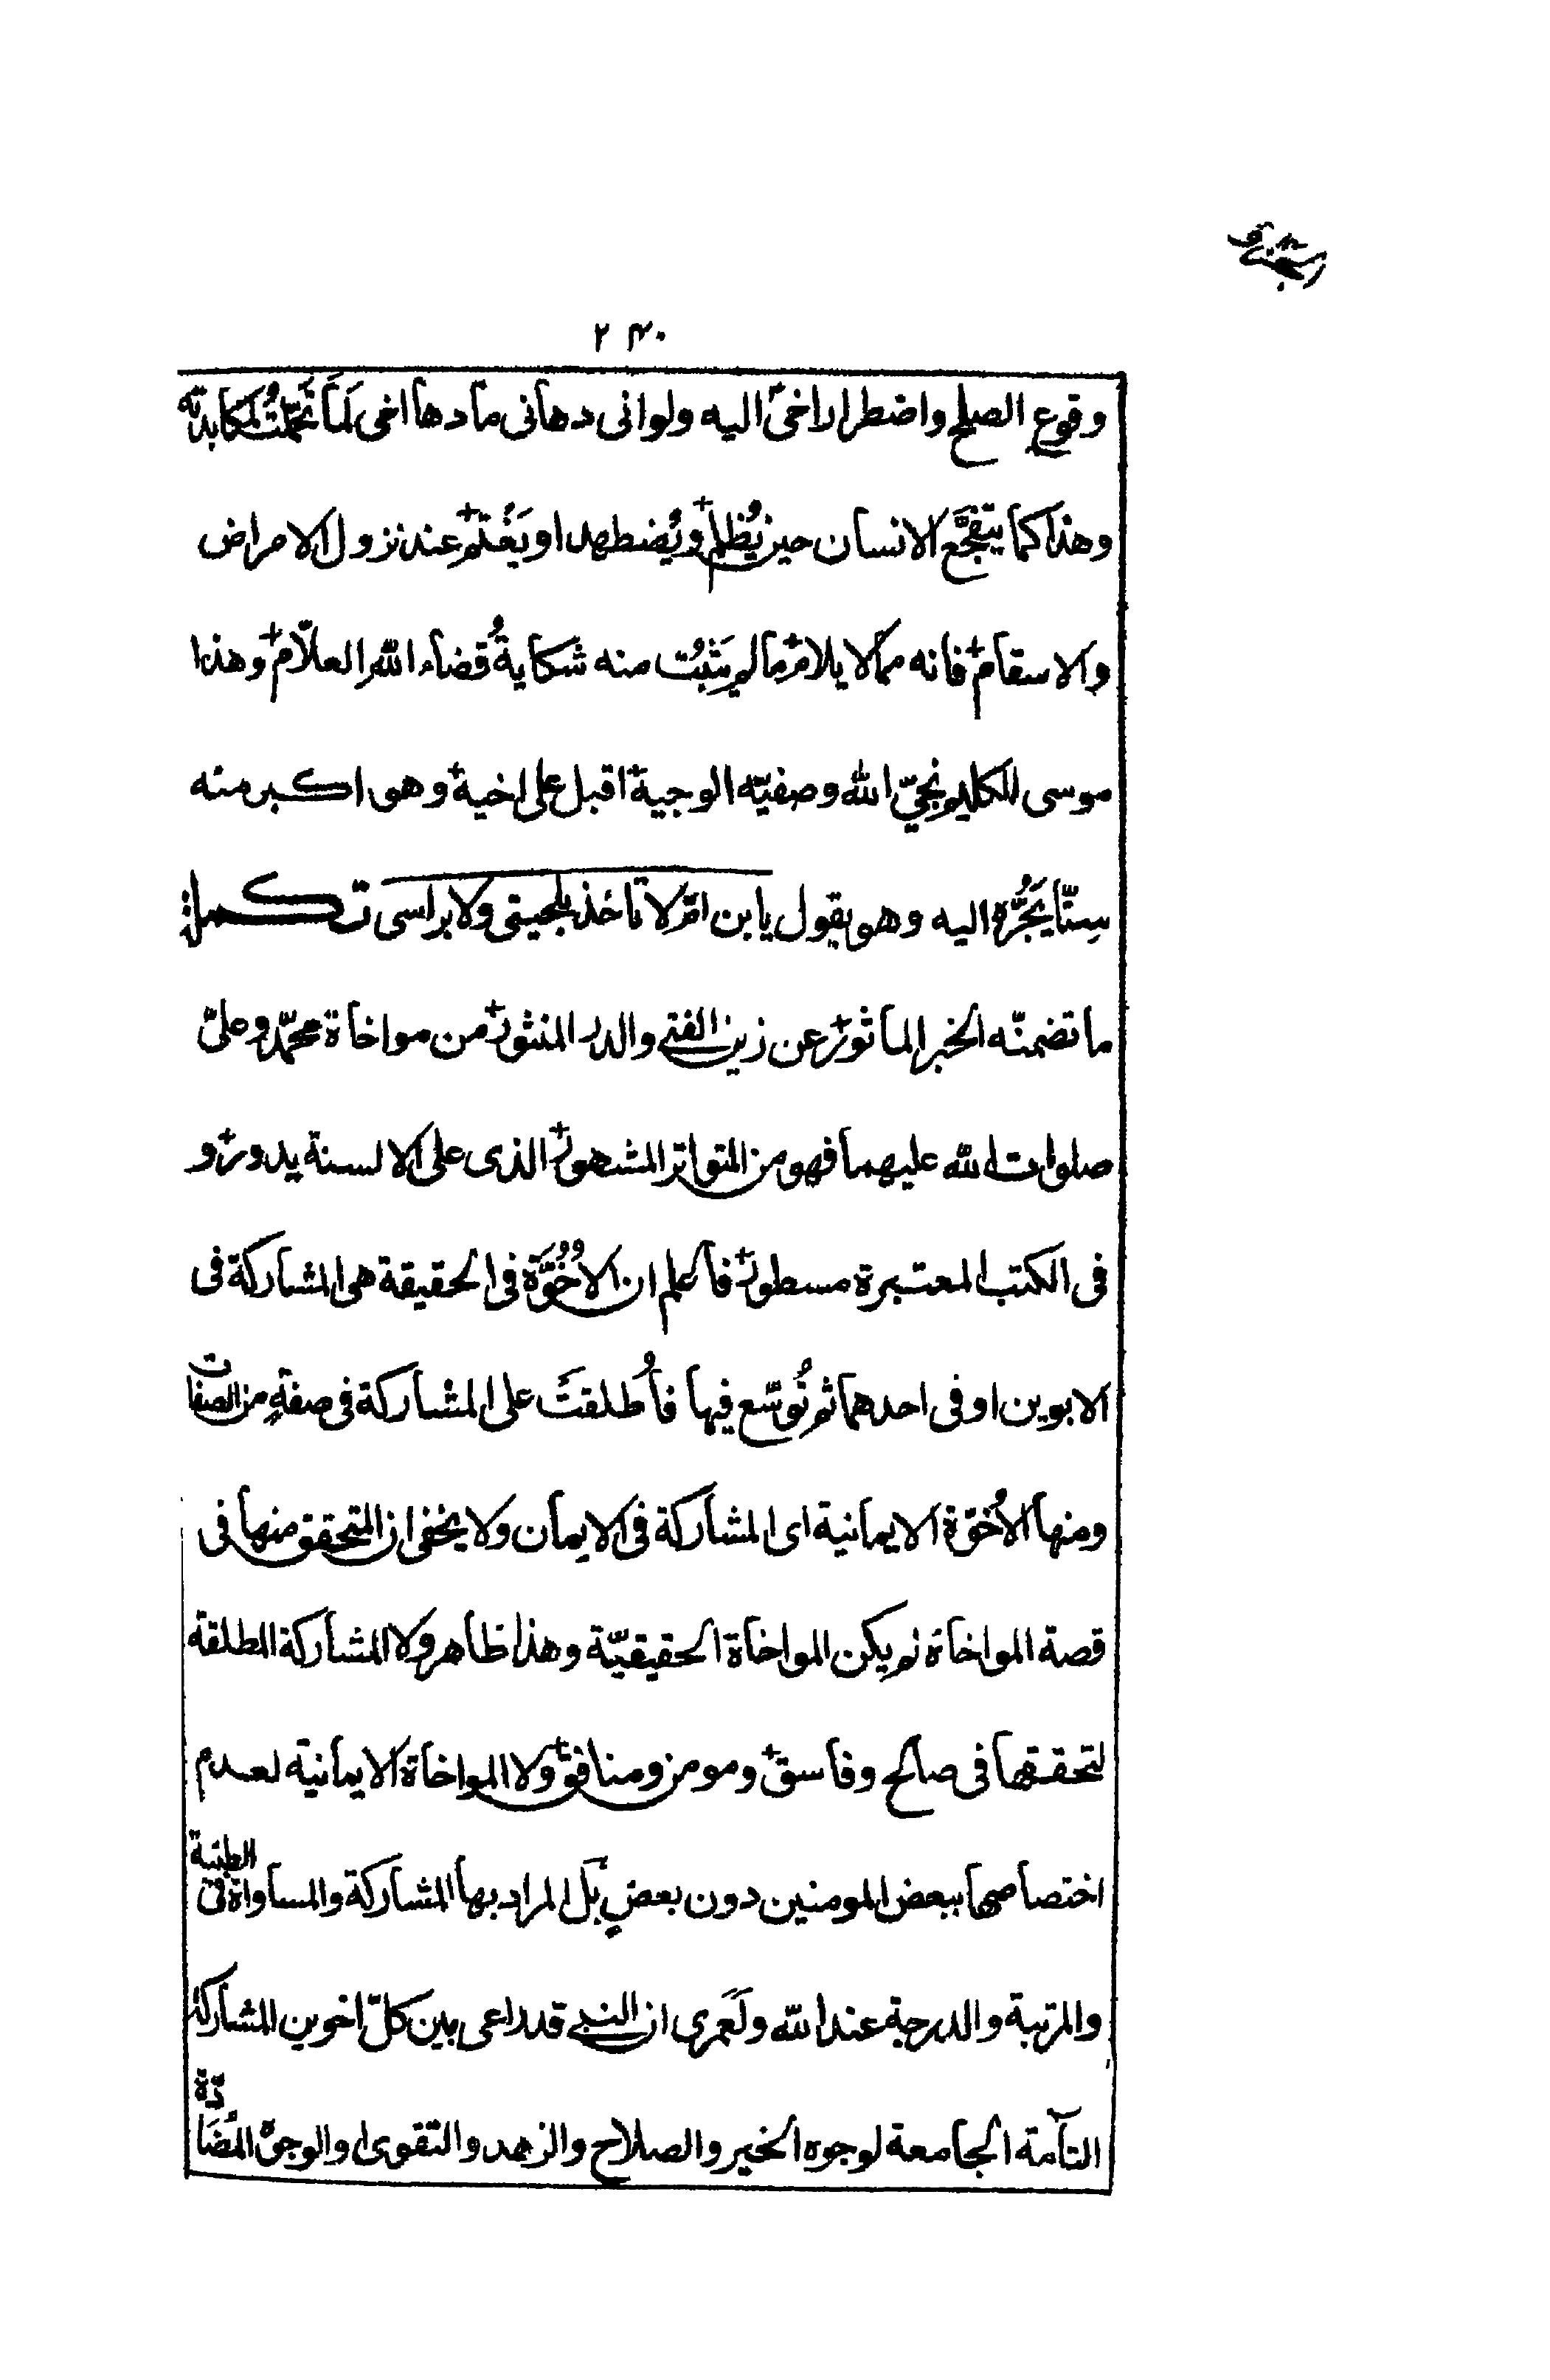 ۲۴۰
وقوع الصلح واضطرار اخیؑ الیه ولوانی دهانی ما دها اخی لَمَا تَحَمَّلتُ لمکابدته
وهذا کما یتفجَّع الانسان حین یُظلم ویُضطهد او یَغْتَمّ عند نزول الامراض
والاسقام فانه مما لا یلام ما لم یَثبُت منه شکایةُ قضاء الله العلّام وهذا
موسی الکلیم نجیّ الله وصفیّه الوجیه اقبل علی اخیه وهو اکبر منه
سِنّاً یَجُرُّه الیه وهو یقول یا بن امّ لا تاخذ بلحیتی ولا براسی تکملة
ما تضمنّه الخبر الماثور عن زین الفتی والدر المنثور من مواخاة محمّد وعلیّ
صلوات الله علیهما فهو من المتواتر المشهور الذی علی الالسنة یدور و
فی الکتب المعتبرة مسطور فاعلم ان الاُخُوَّة فی الحقیقة هی المشارکة فی
الابوین او فی احدهما ثم تُوسّع فیها فاُطلقتَ علی المشارکة فی صفةٍ من الصفات
ومنها الاُخوّة الایمانیة ای المشارکة فی الایمان ولا یخفی ان المتحقق منها فی
قصة المواخاة لم یکن المواخاة الحقیقیّة وهذا ظاهر ولا المشارکة المطلقة
لتحققها فی صالح وفاسق ومومن ومنافق ولا المواخاة الایمانیة لعدم
اختصاصها ببعض المومنین دون بعضٍ بَل المراد بها المشارکة والمساواة فی الطینة
والمرتبة والدرجة عند الله ولَعَمری ان النبی قد راعی بین کلّ اخوین المشارکة
التآمة الجامعة لوجوه الخیر والصلاح والزهد والتقوی او الوجوه المُضَادّة